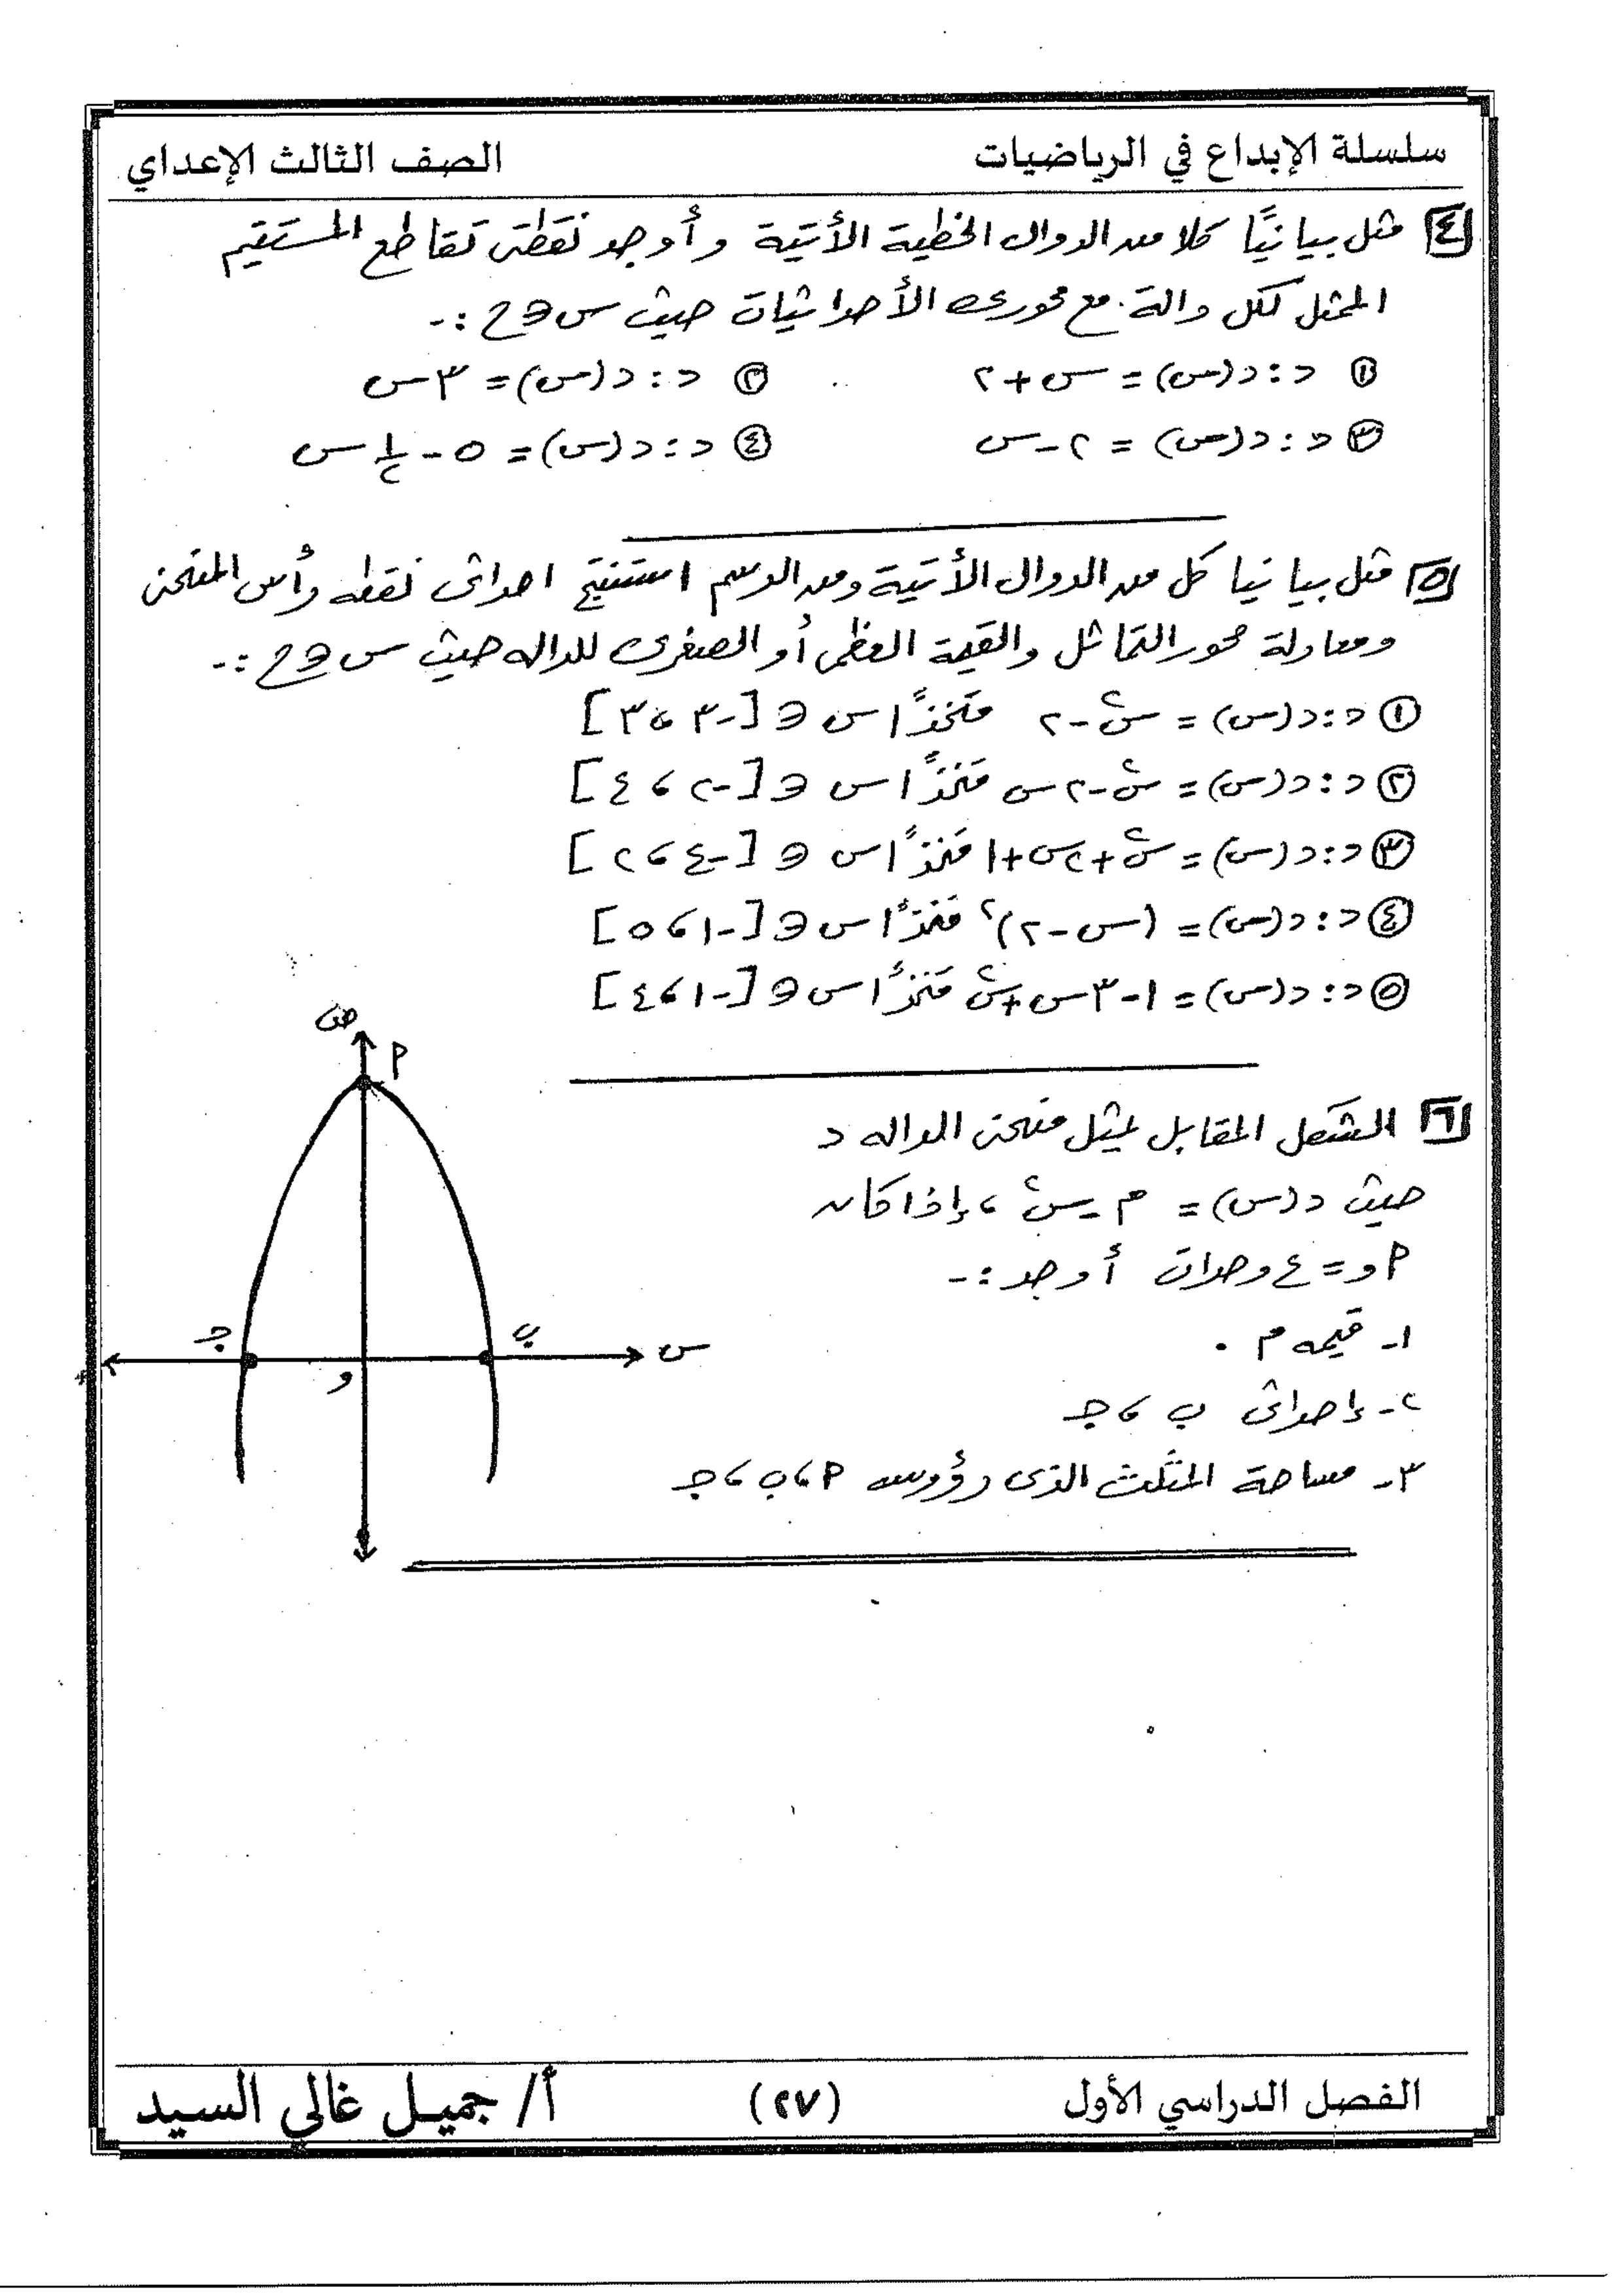 سلسلة الإبداع في الرياضيات
الصف الثالث الإعداي
٤ مثل بيانيًا كلا من الدوال الخطية الأتية وأوجد نقطتى تقاطع المستقيم
الممثل لكل دالة مع محورى الأحداثيات حيث س ∈ ح :-
١ د : د(س) = س + ٢
٢ د : د(س) = ٣ س
٣ د : د(س) = ٢ - س
٤ د : د(س) = ٥ - ١/٢ س
٥ مثل بيانيا كل من الدوال الأتية ومن الرسم استنتج احداثى نقطه رأس المنحنى
ومعادلة محور التماثل والقيمة العظمى أو الصغرى للداله حيث س ∈ ح :-
١ د : د(س) = س٢ - ٢ متخذًا س ∈ [-٣ ، ٣]
٢ د : د(س) = س٢ - ٢ س متخذًا س ∈ [-٢ ، ٤]
٣ د : د(س) = س٢ + ٢ س + ١ متخذًا س ∈ [-٤ ، ٢]
٤ د : د(س) = (س - ٢)٢ متخذًا س ∈ [-١ ، ٥]
٥ د : د(س) = ١ - ٣ س + س٢ متخذًا س ∈ [-١ ، ٤]
٦ الشكل المقابل يمثل منحنى الداله د
حيث د(س) = م - س٢ ، إذا كان
أ و = ٤ وحدات أوجد :-
١- قيمه م .
٢- إحداثى ب ، جـ
٣- مساحة المثلث الذى رؤوسه أ ، ب ، جـ
ص
أ
جـ
ب
س
و
الفصل الدراسي الأول
(٢٧)
أ/ جميل غالي السيد